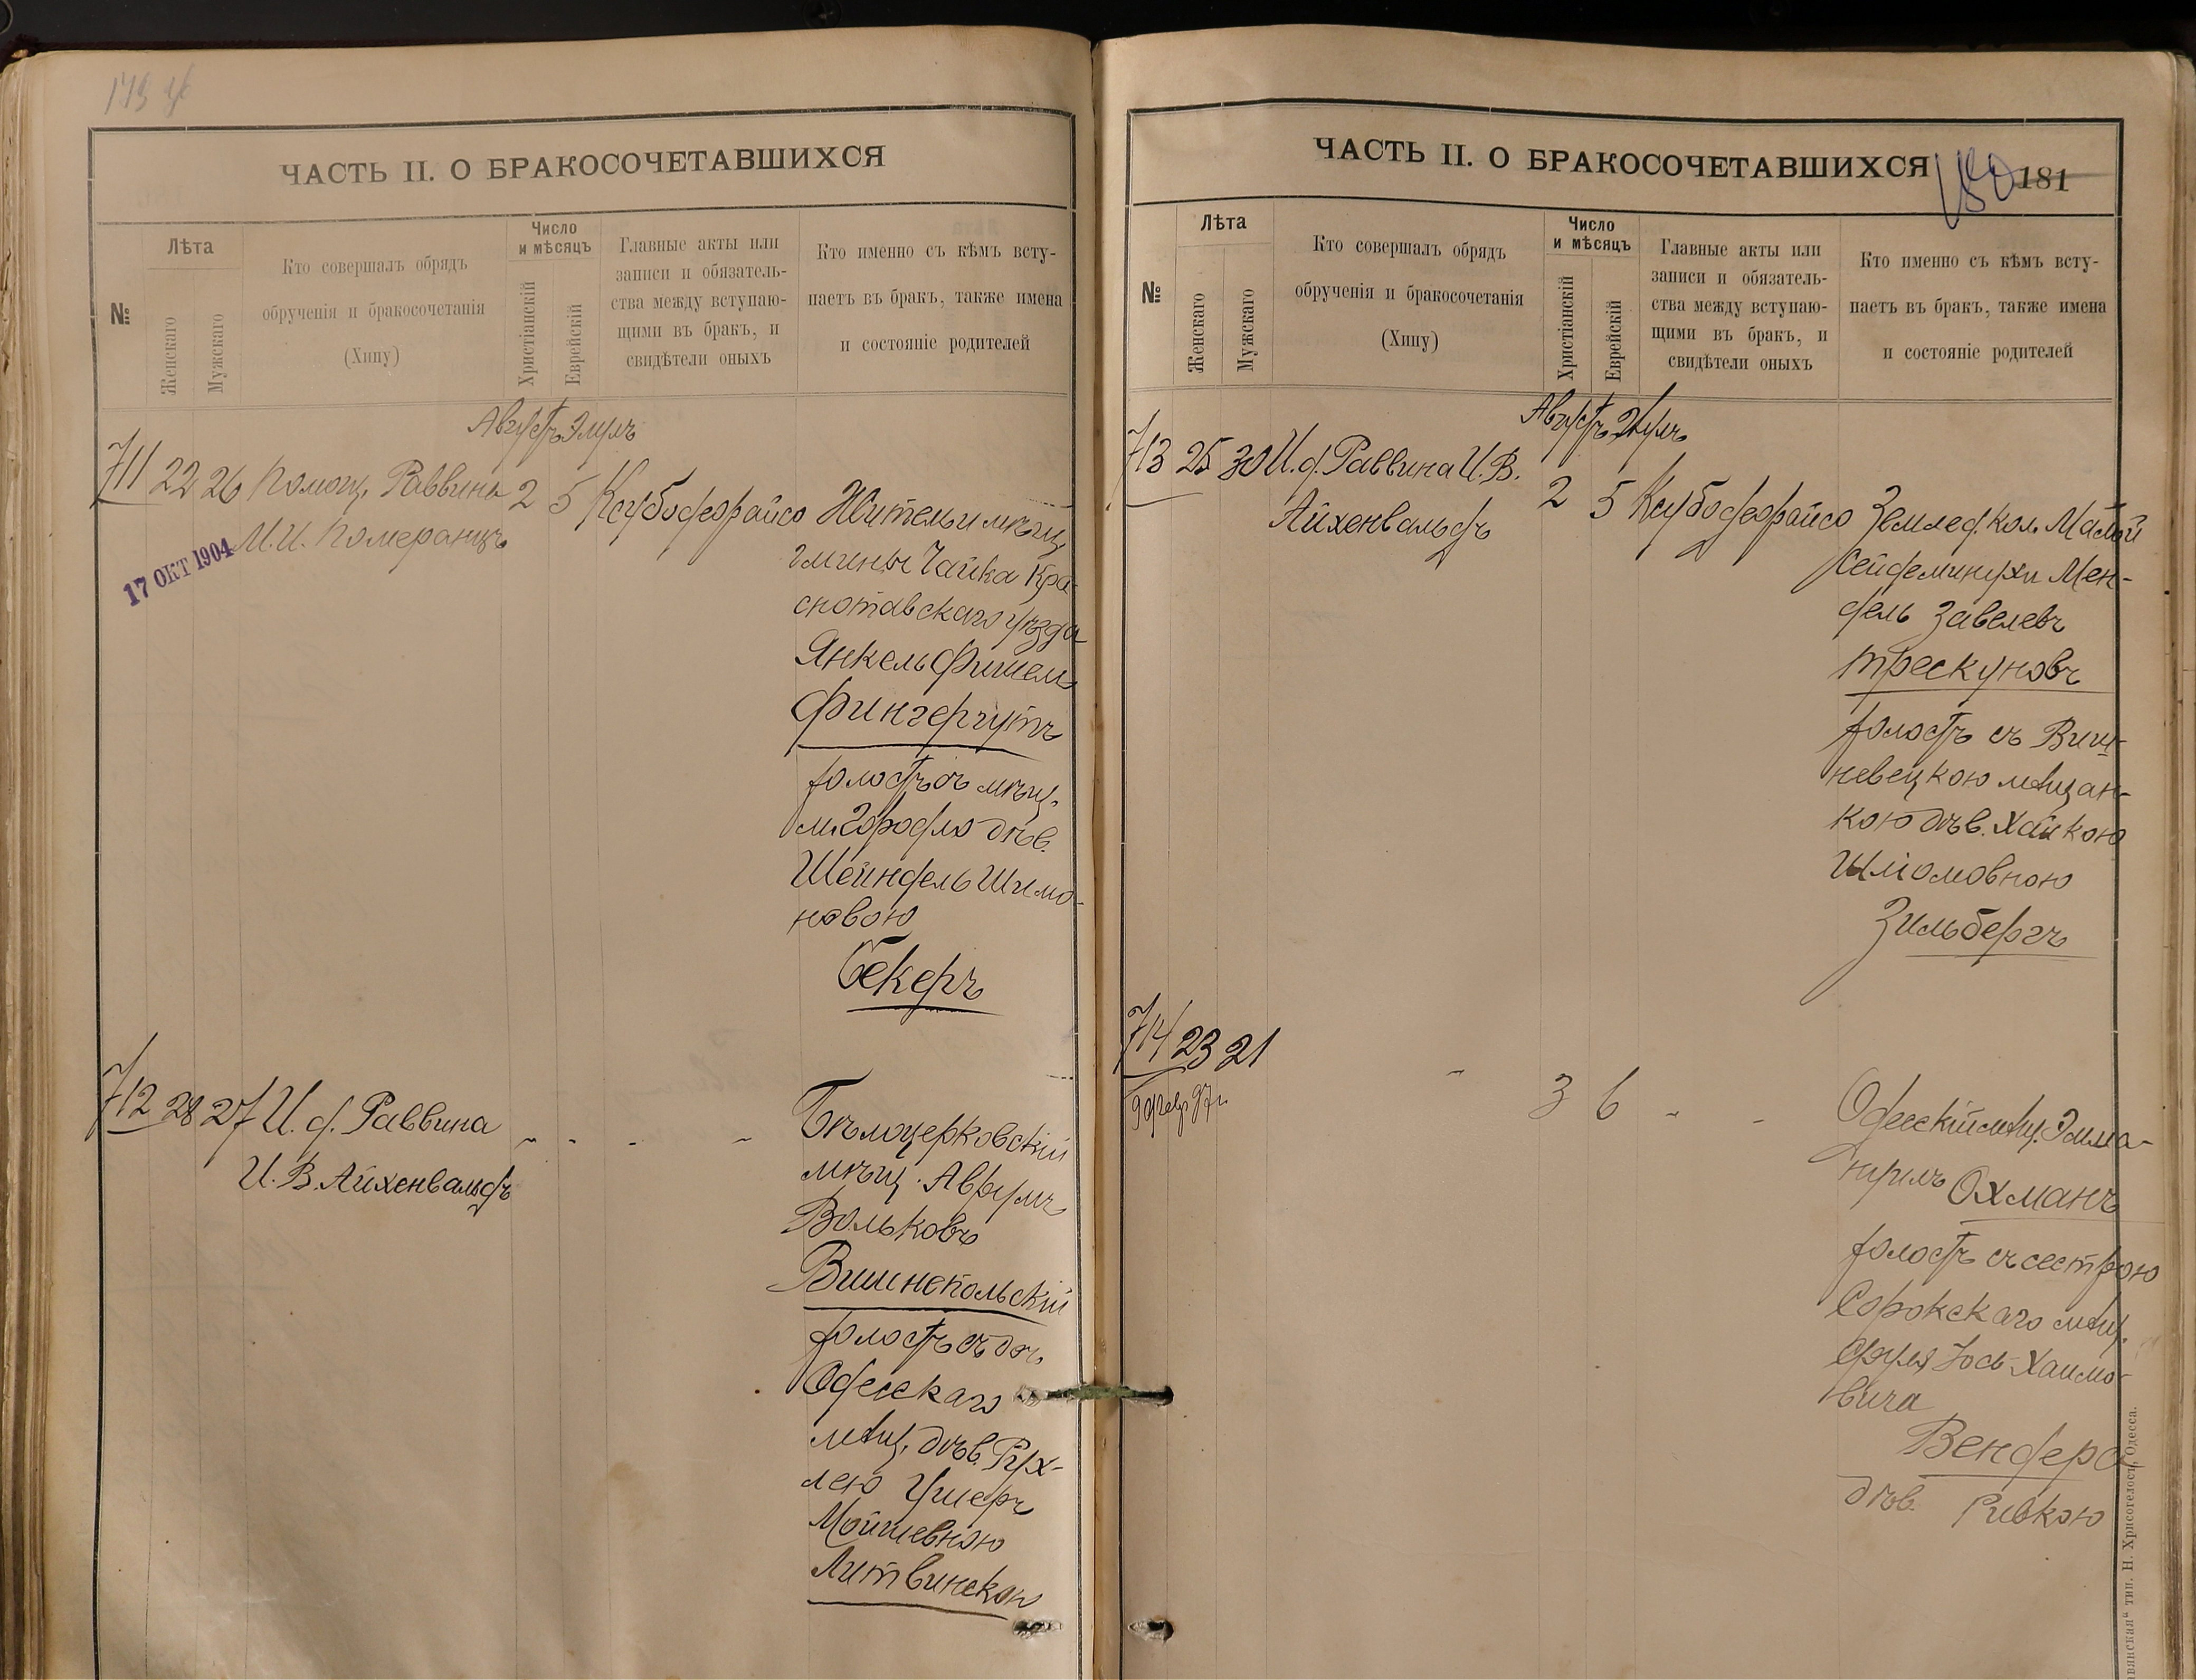 ЧАСТЬ II. О БРАКОСОЧЕТАВШИХСЯ
№
Лѣта
Женскаго
Мужскаго
Кто совершалъ обрядъ
обрученія и бракосочетанія
(Хипу)
Число
и мѣсяцъ
Христіанскій
Еврейскій
Главные акты или
записи и обязатель-
ства между вступаю-
щими въ бракъ, и
свидѣтели оныхъ
Кто именно съ кѣмъ всту-
паетъ въ бракъ, также имена
и состояніе родителей
Августъ Элулъ
711 22 26 Помощ. Раввина 2 5 Ксубодефайсо
М. И. Померанцъ
17 ОКТ 1904
Жительи мѣщ
гмины Чайка Кра-
сноставскаго уѣзда
Янкель Фишель
Фингергутъ
холостъ съ мѣщ.
м. Городло дѣв.
Шейндель Шимо-
новою
Бекеръ
712 28 27 И. д. Раввина
И. В. Айхенвальдъ
Бѣлоцерковскій
мѣщ. Аврумъ
Вольковъ
Вишнепольскій
холостъ съ доч.
Одесскаго
мѣщ. дѣв. Рух-
лею Ушеръ
Мойшевною
Литвинскою
ЧАСТЬ II. О БРАКОСОЧЕТАВШИХСЯ
180 181
№
Лѣта
Женскаго
Мужскаго
Кто совершалъ обрядъ
обрученія и бракосочетанія
(Хипу)
Число
и мѣсяцъ
Христіанскій
Еврейскій
Главные акты или
записи и обязатель-
ства между вступаю-
щими въ бракъ, и
свидѣтели оныхъ
Кто именно съ кѣмъ всту-
паетъ въ бракъ, также имена
и состояніе родителей
Августъ Элулъ
713 25 30 И. д. Раввина И. В. 2 5 Ксубодефайсо
Айхенвальдъ
Земле. кол. Малой
Сейдеминухи Мен-
дель Завелевъ
Трескуновъ
холостъ съ Виш-
невецкою мѣщан-
кою дѣв. Хайкою
Шліомовною
Зильбергъ
714 23 21 3 6
Одесскій мѣщ. Эмма-
нуилъ Охманъ
холостъ съ сестрою
Сорокскаго мѣщ.
Сруля Іось-Хаимо-
вича
Вендера
дѣв. Ривкою
тип. Н. Хрисогелосъ, Одесса.